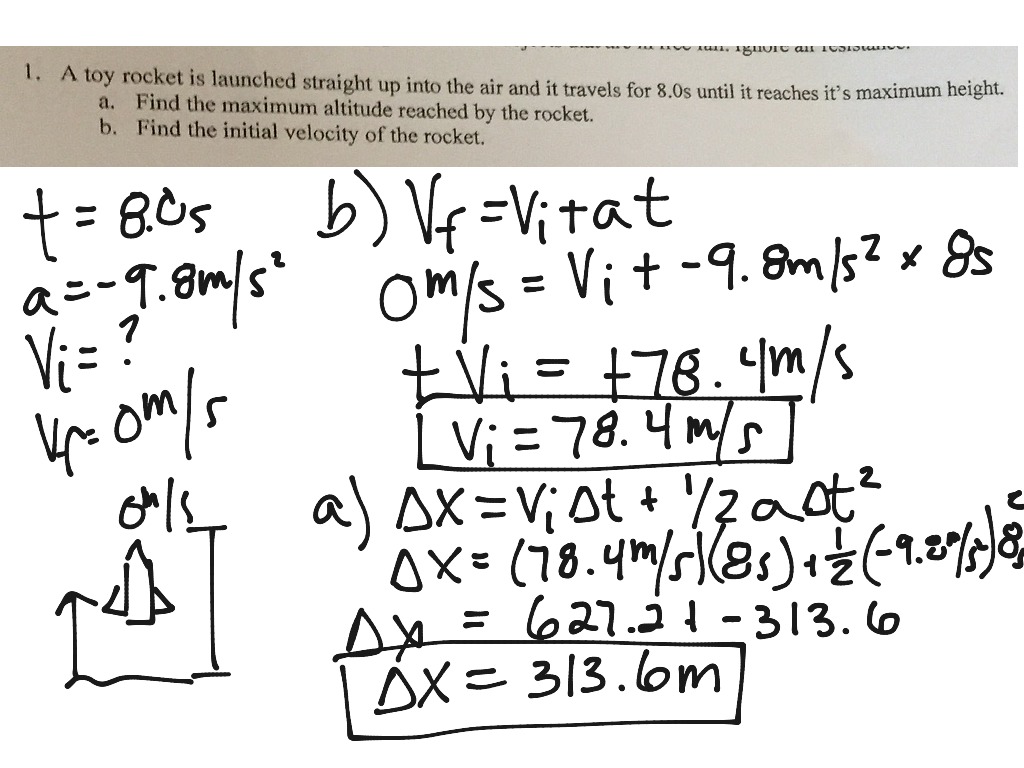 free fall. Ignore all resistance.
1. A toy rocket is launched straight up into the air and it travels for 8.0s until it reaches it's maximum height.
a. Find the maximum altitude reached by the rocket.
b. Find the initial velocity of the rocket.
t = 8.0s
a = -9.8m/s²
Vi = ?
Vf = 0m/s
0m/s
b) Vf = Vi + at
0m/s = Vi + -9.8m/s² × 8s
+Vi = +78.4m/s
Vi = 78.4 m/s
a) ΔX = Vi Δt + 1/2 a Δt²
ΔX = (78.4m/s)(8s) + 1/2 (-9.8m/s²)8s²
Δx = 627.2 + -313.6
ΔX = 313.6m